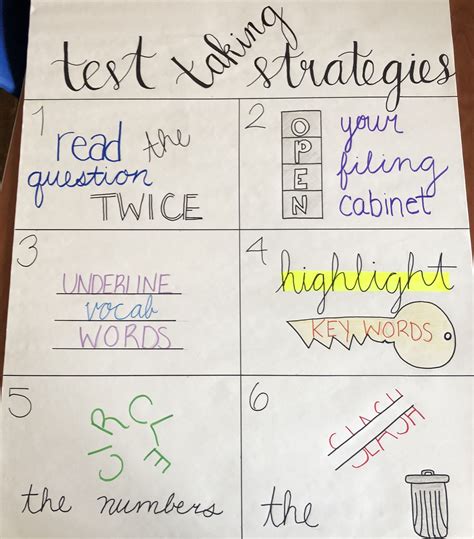 test taking strategies
1
read the
question
TWICE
2
OPEN
your
filing
cabinet
3
UNDERLINE
vocab
WORDS
4
highlight
KEY WORDS
5
CIRCLE
the numbers
6
SLASH
the